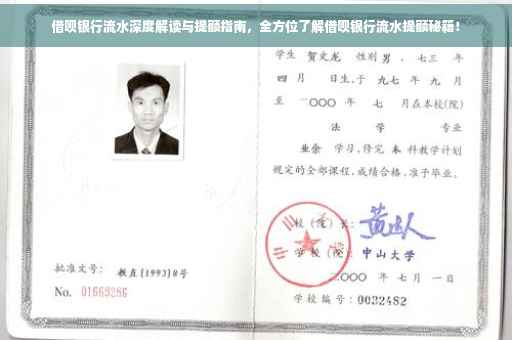 借呗银行流水深度解读与提额指南，全方位了解借呗银行流水提额秘籍！
学生 贺文龙 性别男，七三 年
四 月 日生，于 九七 年 九 月
至 二〇〇〇 年 七 月在本校(院)
法 学 专业
业余 学习，修完 本 科教学计划
规定的全部课程，成绩合格，准予毕业。
校（院）长：
学 校（院）：中山大学
二〇〇〇 年 七 月 一 日
批准文号： 教直[1993]8号
No. 01669286
学校编号：0032482